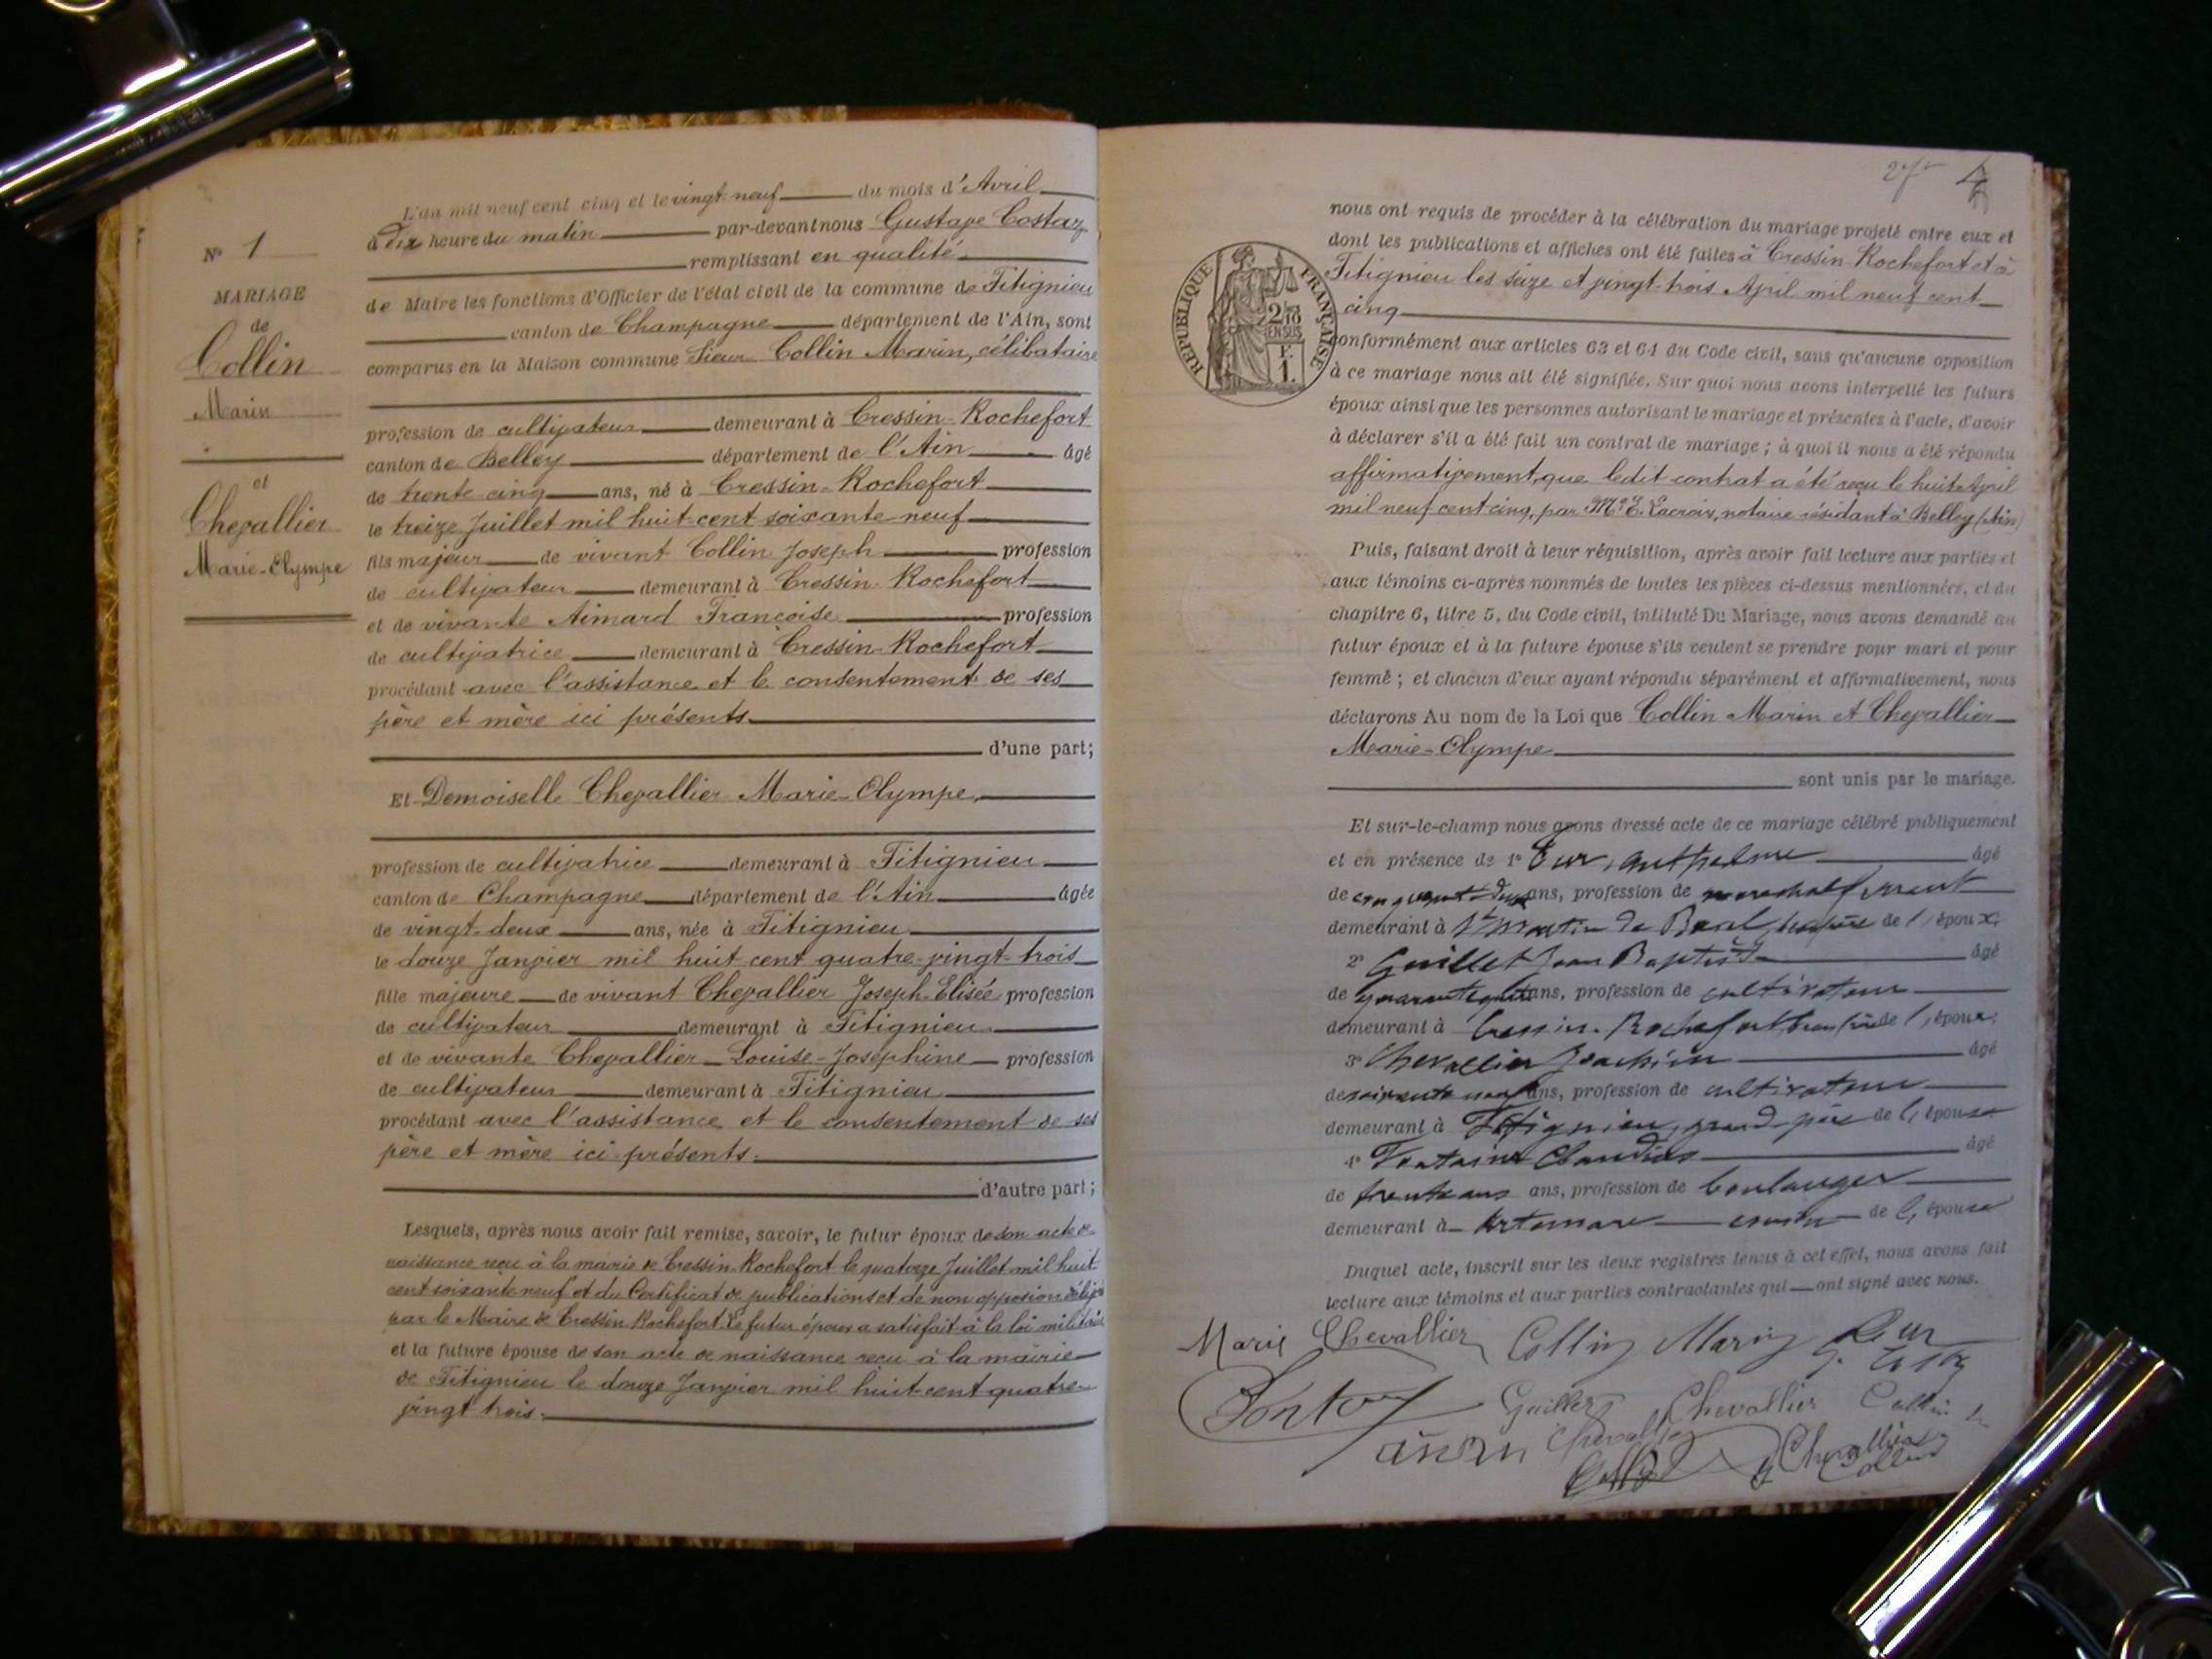 L'an mil neuf cent cinq et le vingt neuf du mois d'Avril
à dix heure du matin par-devant nous Gustave Costaz
remplissant en qualité
de Maire les fonctions d'Officier de l'état civil de la commune de Fitignieu
canton de Champagne département de l'Ain, sont
comparus en la Maison commune Sieur Collin Marin, célibataire
profession de cultivateur demeurant à Cressin-Rochefort
canton de Belley département de l'Ain âgé
de trente cinq ans, né à Cressin-Rochefort
le treize Juillet mil huit cent soixante neuf
fils majeur de vivant Collin Joseph profession
de cultivateur demeurant à Cressin-Rochefort
et de vivante Aimard Françoise profession
de cultivatrice demeurant à Cressin-Rochefort
procédant avec l'assistance et le consentement de ses
père et mère ici présents
d'une part;
Et Demoiselle Chevallier Marie-Olympe,
profession de cultivatrice demeurant à Fitignieu
canton de Champagne département de l'Ain âgée
de vingt-deux ans, née à Fitignieu
le douze Janvier mil huit cent quatre-vingt-trois
fille majeure de vivant Chevallier Joseph-Elisée profession
de cultivateur demeurant à Fitignieu
et de vivante Chevallier Louise-Joséphine profession
de cultivateur demeurant à Fitignieu
procédant avec l'assistance et le consentement de ses
père et mère ici présents.
d'autre part;
Lesquels, après nous avoir fait remise, savoir, le futur époux de son acte de
naissance reçu à la mairie de Cressin-Rochefort le quatorze Juillet mil huit
cent soixante neuf et du Certificat de publications et de non opposion délivré
par le Maire de Cressin-Rochefort. Le futur époux a satisfait à la loi militaire
et la future épouse de son acte de naissance reçu à la mairie
de Fitignieu le douze Janvier mil huit cent quatre-
vingt trois.
No 1
MARIAGE
de
Collin
Marin
et
Chevallier
Marie-Olympe
27 4
nous ont requis de procéder à la célébration du mariage projeté entre eux et
dont les publications et affiches ont été faites à Cressin-Rochefort et à
Fitignieu les seize et vingt-trois Avril mil neuf cent
cinq
conformément aux articles 63 et 64 du Code civil, sans qu'aucune opposition
à ce mariage nous ait été signifiée. Sur quoi nous avons interpellé les futurs
époux ainsi que les personnes autorisant le mariage et présentes à l'acte, d'avoir
à déclarer s'il a été fait un contrat de mariage; à quoi il nous a été répondu
affirmativement, que ledit contrat a été reçu le huit Avril
mil neuf cent cinq, par Me E. Lacroix, notaire résidant à Belley (Ain)
Puis, faisant droit à leur réquisition, après avoir fait lecture aux parties et
aux témoins ci-après nommés de toutes les pièces ci-dessus mentionnées, et du
chapitre 6, titre 5, du Code civil, intitulé Du Mariage, nous avons demandé au
futur époux et à la future épouse s'ils veulent se prendre pour mari et pour
femme; et chacun d'eux ayant répondu séparément et affirmativement, nous
déclarons Au nom de la Loi que Collin Marin et Chevallier
Marie-Olympe
sont unis par le mariage.
Et sur-le-champ nous avons dressé acte de ce mariage célébré publiquement
et en présence de 1° Anthelme âgé
de cinquante deux ans, profession de marechal ferrent
demeurant à St Martin de Bavel, de l'époux,
2° Guillet Jean Baptiste âgé
de ans, profession de cultivateur
demeurant à Cressin-Rochefort beau frère de l'époux,
3° Chevallier Joachim âgé
de soixante neuf ans, profession de cultivateur
demeurant à Fitignieu, grand-père de l'épouse
4° Fontaine Claudius âgé
de trente ans ans, profession de boulanger
demeurant à Artemare cousin de l'épouse
Duquel acte, inscrit sur les deux registres tenus à cet effet, nous avons fait
lecture aux témoins et aux parties contractantes qui ont signé avec nous.
Marie Chevallier Collin Marin
Guillet Chevallier Collin
Chevallier
Chevallier
RÉPUBLIQUE FRANÇAISE
2/10
EN SUS
F.
1.